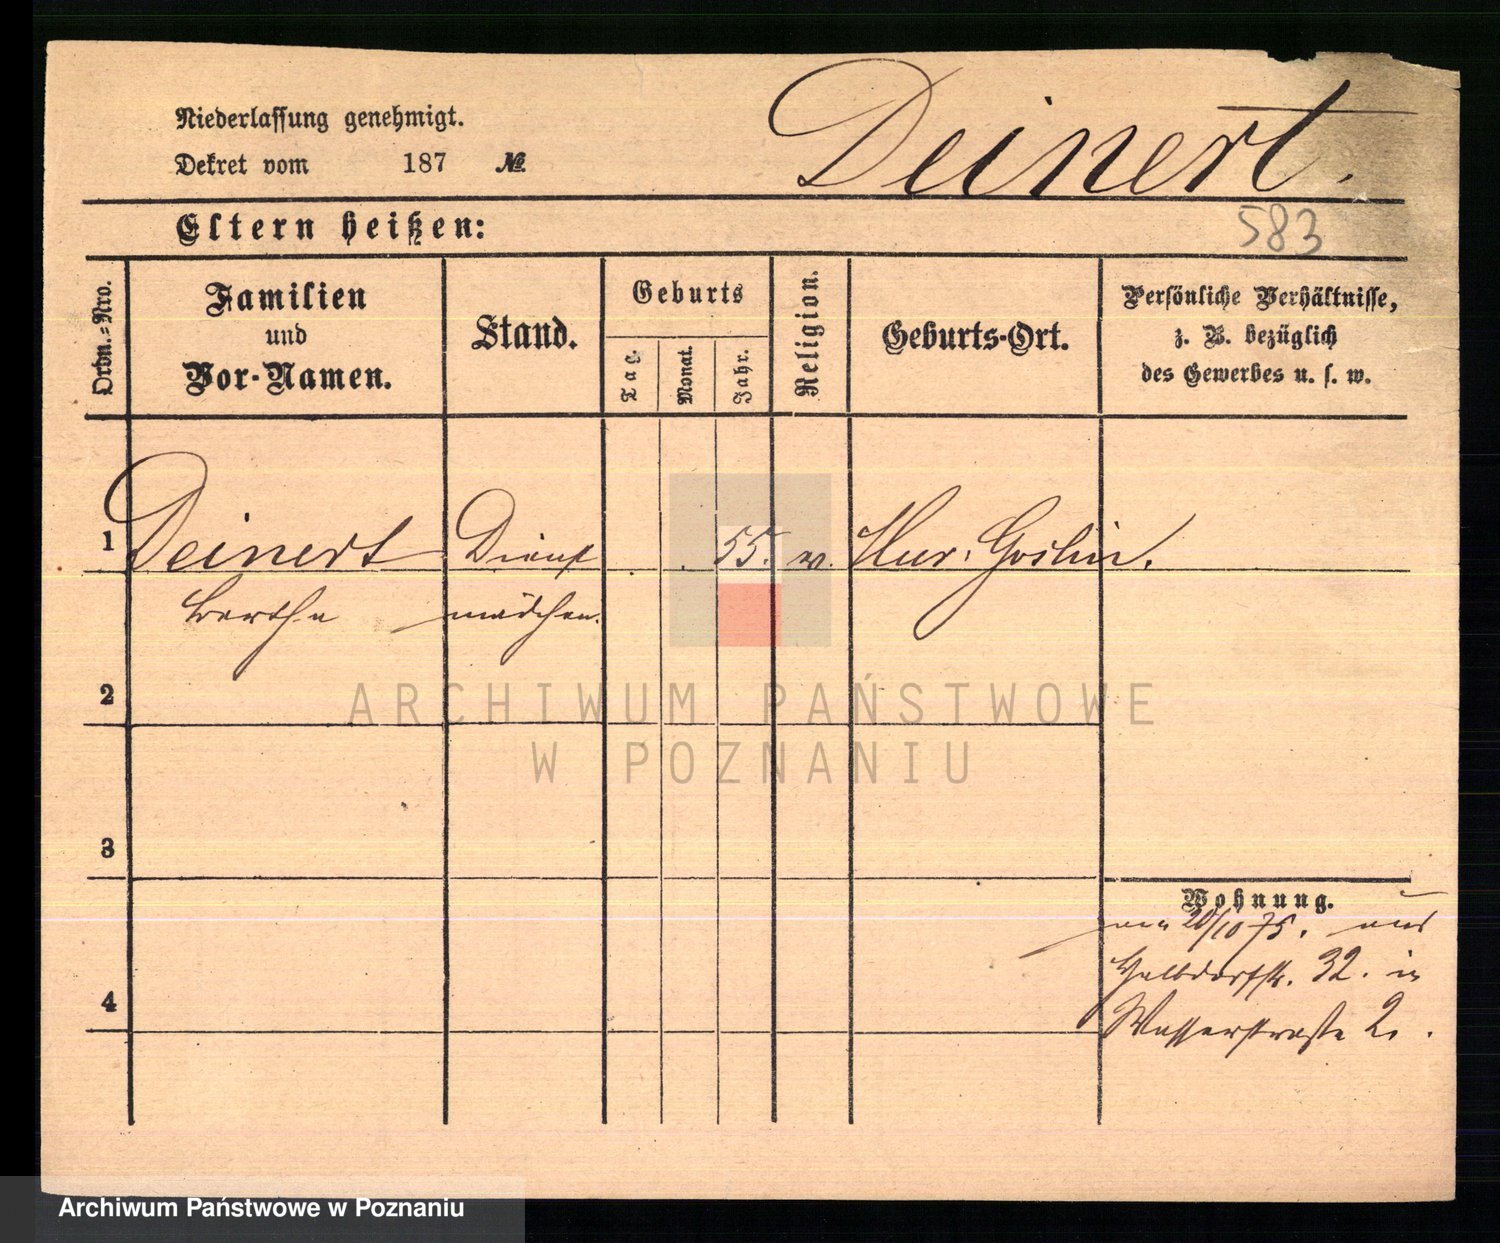 Niederlassung genehmigt.
Dekret vom 187 №
Deinert.
Eltern heißen:
583
Ordn.=Nro.
Familien
und
Vor-Namen.
Stand.
Geburts
Tag.
Monat.
Jahr.
Religion.
Geburts-Ort.
Persönliche Verhältnisse,
z. B. bezüglich
des Gewerbes u. s. w.
1 Deinert Dienst 55. Mur. Goslin.
Bertha mädchen.
2
ARCHIWUM PAŃSTWOWE
W POZNANIU
3
Wohnung.
20/10 75. aus
Halbdorfstr. 32. in
4
Wasserstraße 2.
Archiwum Państwowe w Poznaniu